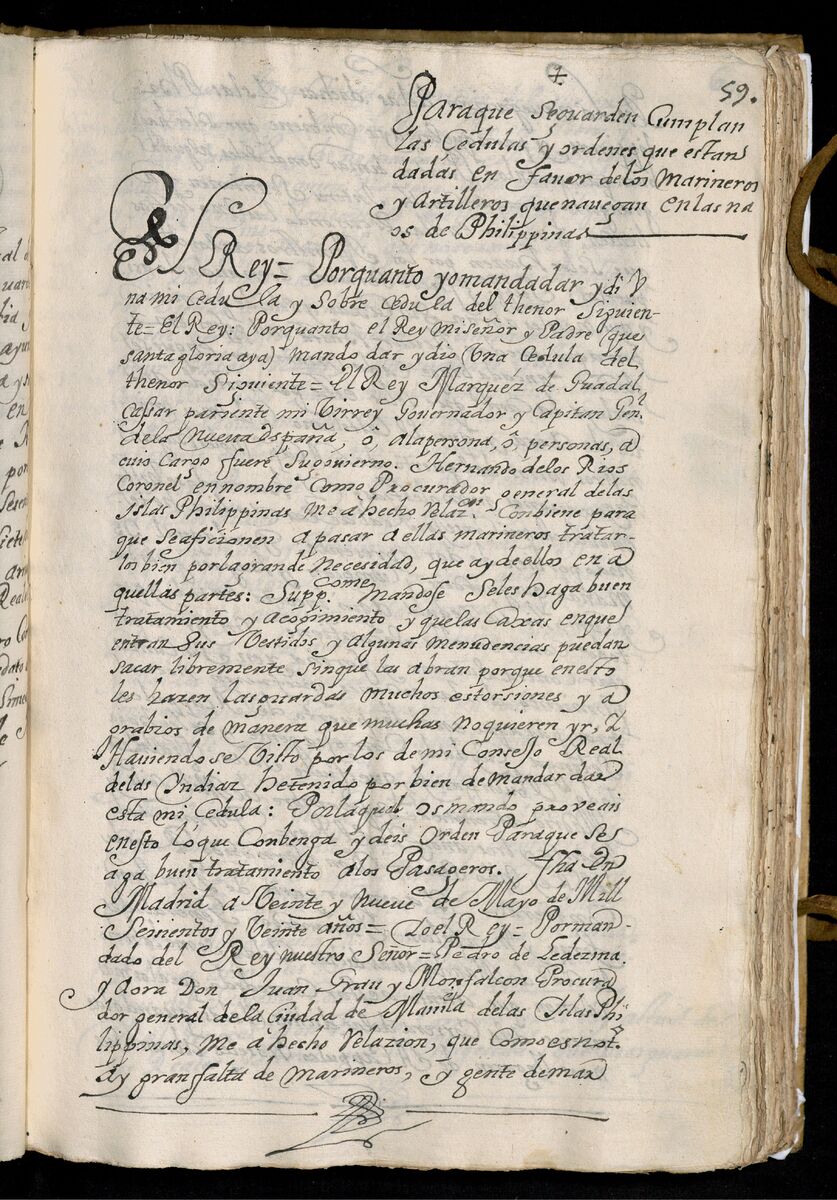 +
59.
Paraque seguarden Cumplan
las Cedulas y ordenes que estan
dadas en favor delos Marineros
y Artilleros quenauegan enlas na
os de Philippinas
El Rey= Porquanto yomandadar y di V
na mi Cedula y Sobre Cedula del thenor Siguien-
te= El Rey: Porquanto el Rey mi señor y Padre (que
santa gloria aya) mando dar y dio Vna Cedula del
thenor Siguiente= El Rey Marquéz de Guadal
cassar pariente mi Virrey Governador y Capitan Genl
dela Nueva españa, ò, alapersona, ô, personas, a
cuio Cargo fuere Sugovierno. Hernando delos Rios
Coronel en nombre Como Procurador general delas
Islas Philippinas me à hecho Relazon. Conbiene para
que seaficionen apasar aellas marineros tratar-
los bien porlagrande Necesidad, que ay de ellos en a
quellas partes: Supp.come Mandose Seles haga buen
tratamiento y Acogimiento y quelas Caxas enque
entran Sus Vestidos y Algunas menudencias puedan
sacar libremente sinque las abran porque enesto
les hazen lasguardas muchos estorsiones y a
grabios de manera que muchas noquieren yr, &
Haviendose Visto por los de mi Consejo Real
delas Yndiaz hetenido por bien de mandar dar
esta mi Cedula: Porlaqual osmando proveais
enesto lóque Conbenga y deis Orden Paraque Ses
aga buen tratamiento alos Pasageros. fha En
Madrid a Veinte y nueve de Mayo de Mill
Seiscientos y Veinte años= Yo el Rey= Porman-
dado del Rey nuestro Señor= Pedro de Ledezma.
Y aora Don Juan Grau y Monfalcon Procura
dor general de la Ciudad de Manila delas Islas Phi
lippinas, me à hecho Relazion, que Como es nott.o
ay gran falta de marineros, y gente demar